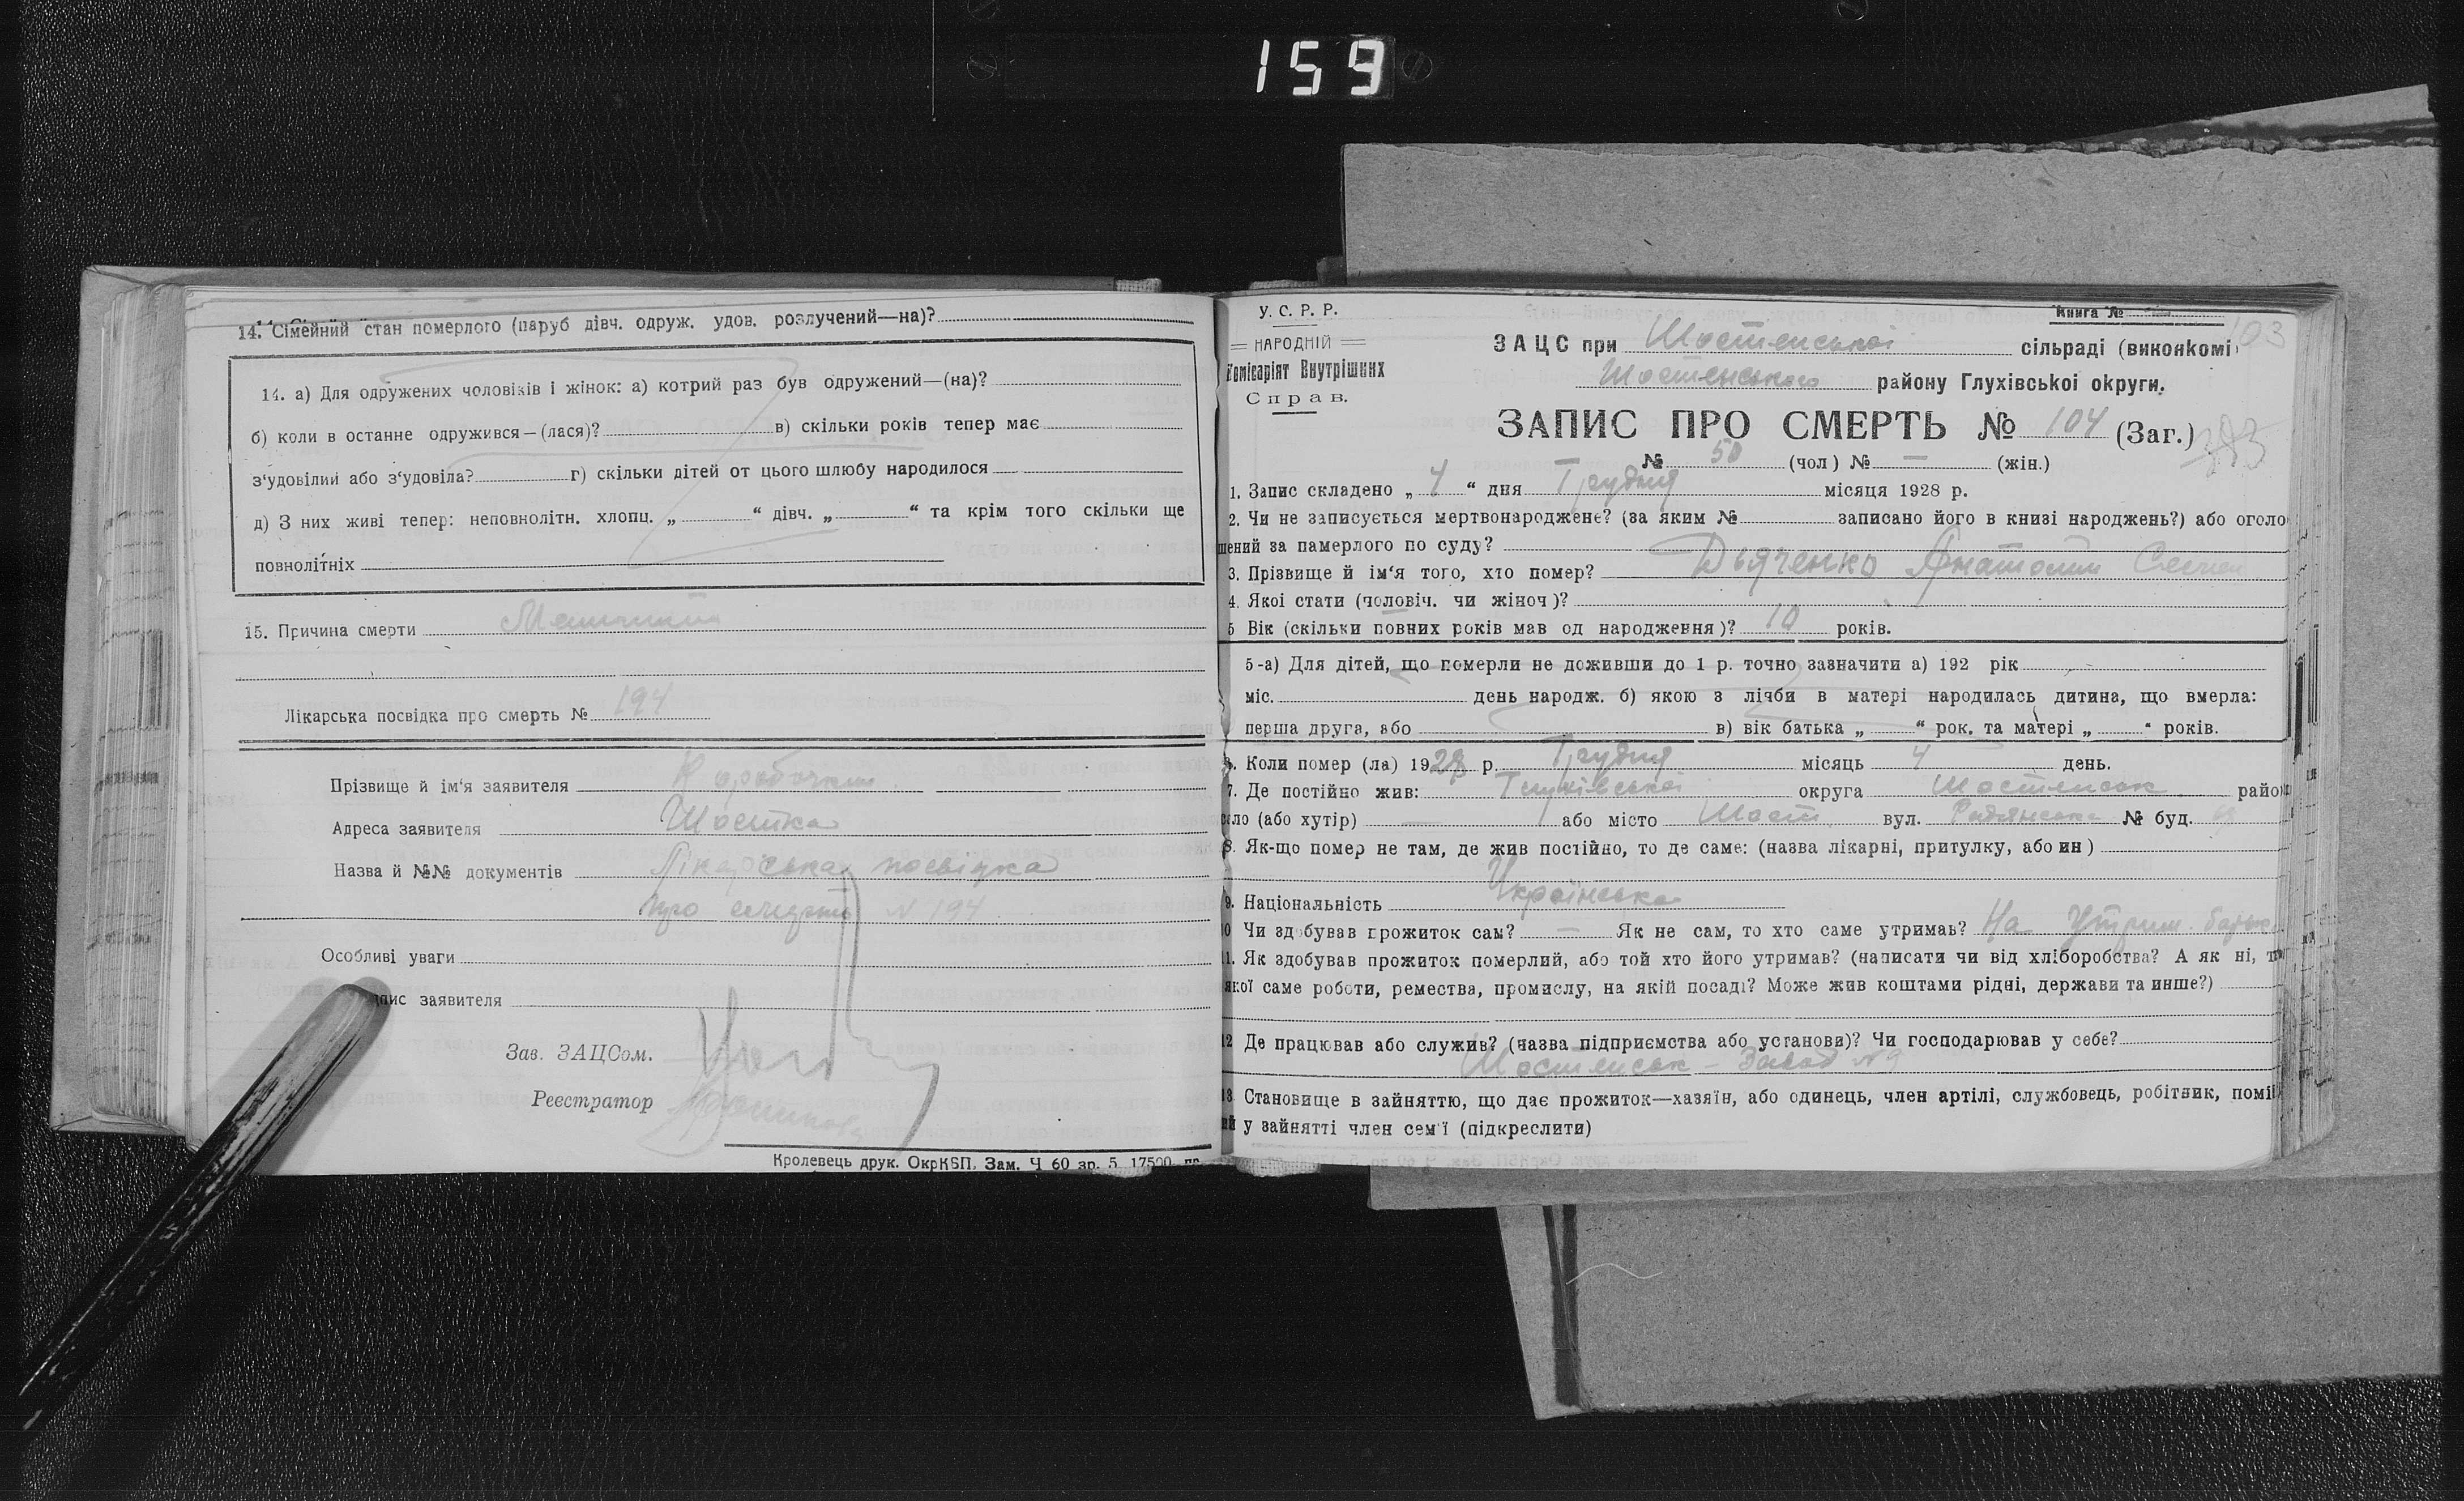 159
14. Сімейний стан померлого (паруб дівч. одруж. удов. розлучений—на)?
14. а) Для одружених чоловіків і жінок: а) котрий раз був одружений—(на)?
б) коли в останне одружився—(лася)? в) скільки років тепер має
з'удовілий або з'удовіла? г) скільки дітей от цього шлюбу народилося
д) З них живі тепер: неповнолітн. хлопц. „ “ дівч. „ “ та крім того скільки ще
повнолітніх
15. Причина смерти
Лікарська посвідка про смерть № 194
Прізвище й ім'я заявителя
Адреса заявителя Шостка
Назва й №№ документів Лікарська посвідка
про смерть N 194
Особливі уваги
пис заявителя
Зав. ЗАЦСом.
Реестратор
Кролевець друк. ОкрКВП. Зам. Ч 60 зр. 5 17500
У. С. Р. Р.
НАРОДНІЙ
Комісаріят Внутрішних
Справ.
Книга №
103
ЗАЦС при Шостенської сільраді (виконкомі
Шостенського району Глухівської округи.
ЗАПИС ПРО СМЕРТЬ № 104 (Заг.)
№ 50 (чол) № — (жін.)
1. Запис складено „ 4 “ дня Грудня місяця 1928 р.
2. Чи не записується мертвонароджене? (за яким № записано його в книзі народжень?) або оголо
шений за памерлого по суду?
3. Прізвище й ім'я того, хто помер? Дьяченко Анатолий Семен
4. Якоі стати (чоловіч. чи жіноч)?
5 Вік (скільки повних років мав од народження)? 10 років.
5-а) Для дітей, що померли не доживши до 1 р. точно зазначити а) 192 рік
міс. день народж. б) якою з лічби в матері народилась дитина, що вмерла:
перша друга, або в) вік батька „ “ рок. та матері „ “ років.
6. Коли помер (ла) 1928 р. Грудня місяць 4 день.
7. Де постійно жив: Глухівської округа Шостенськ райо
село (або хутір) — або місто Шост. вул. Радянська № буд.
8. Як-що помер не там, де жив постійно, то де саме: (назва лікарні, притулку, або ин)
9. Національність Українська
10 Чи здобував прожиток сам? — Як не сам, то хто саме утримав? На Утрим. батьк
11. Як здобував прожиток померлий, або той хто його утримав? (написати чи від хліборобства? А як ні, т
якої саме роботи, ремества, промислу, на якій посаді? Може жив коштами рідні, держави та инше?)
12 Де працював або служив? (назва підприємства або установи)? Чи господарював у себе?
Шостенськ - Завод N 9
13. Становище в зайняттю, що дає прожиток—хазяїн, або одинець, член артілі, службовець, робітник, помі
ий у зайнятті член сем'ї (підкреслити)